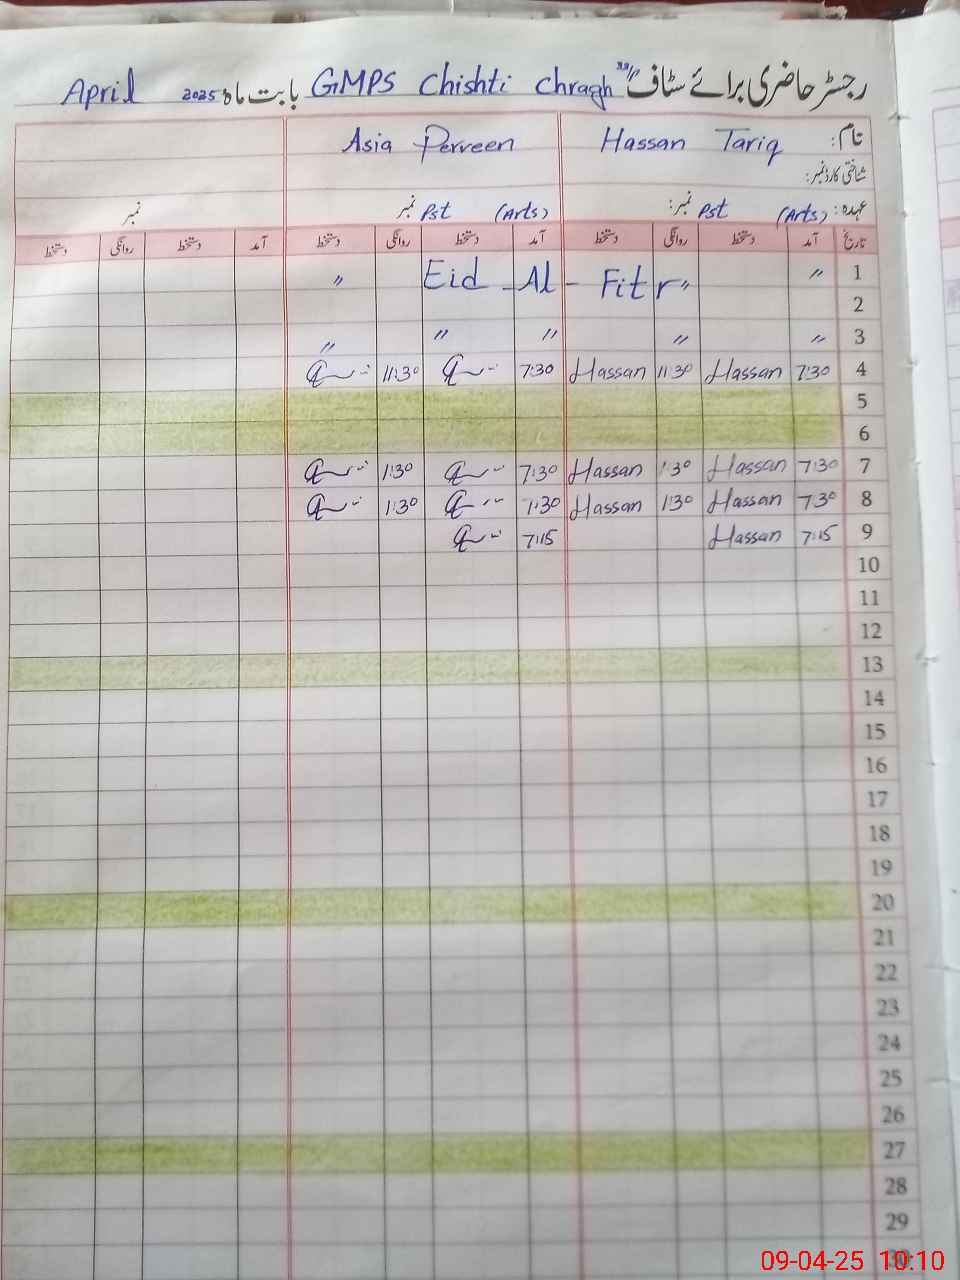 رجسٹر حاضری برائے سٹاف GMPS Chishti Chragh بابت ماہ April 2025
نام: Hassan Tariq Asia Perveen
شناختی کارڈ نمبر:
عہدہ: Pst (Arts) نمبر: Pst (Arts) نمبر نمبر
تاریخ آمد دستخط روانگی دستخط آمد دستخط روانگی دستخط آمد دستخط روانگی دستخط
1 〃 Eid - Al - Fitr 〃 〃
2
3 〃 〃 〃 〃 〃
4 7:30 Hassan 11:30 Hassan 7:30 11:30
5
6
7 7:30 Hassan 1:30 Hassan 7:30 1:30
8 7:30 Hassan 1:30 Hassan 7:30 1:30
9 7:15 Hassan 7:15
10
11
12
13
14
15
16
17
18
19
20
21
22
23
24
25
26
27
28
29
30
09-04-25 10:10